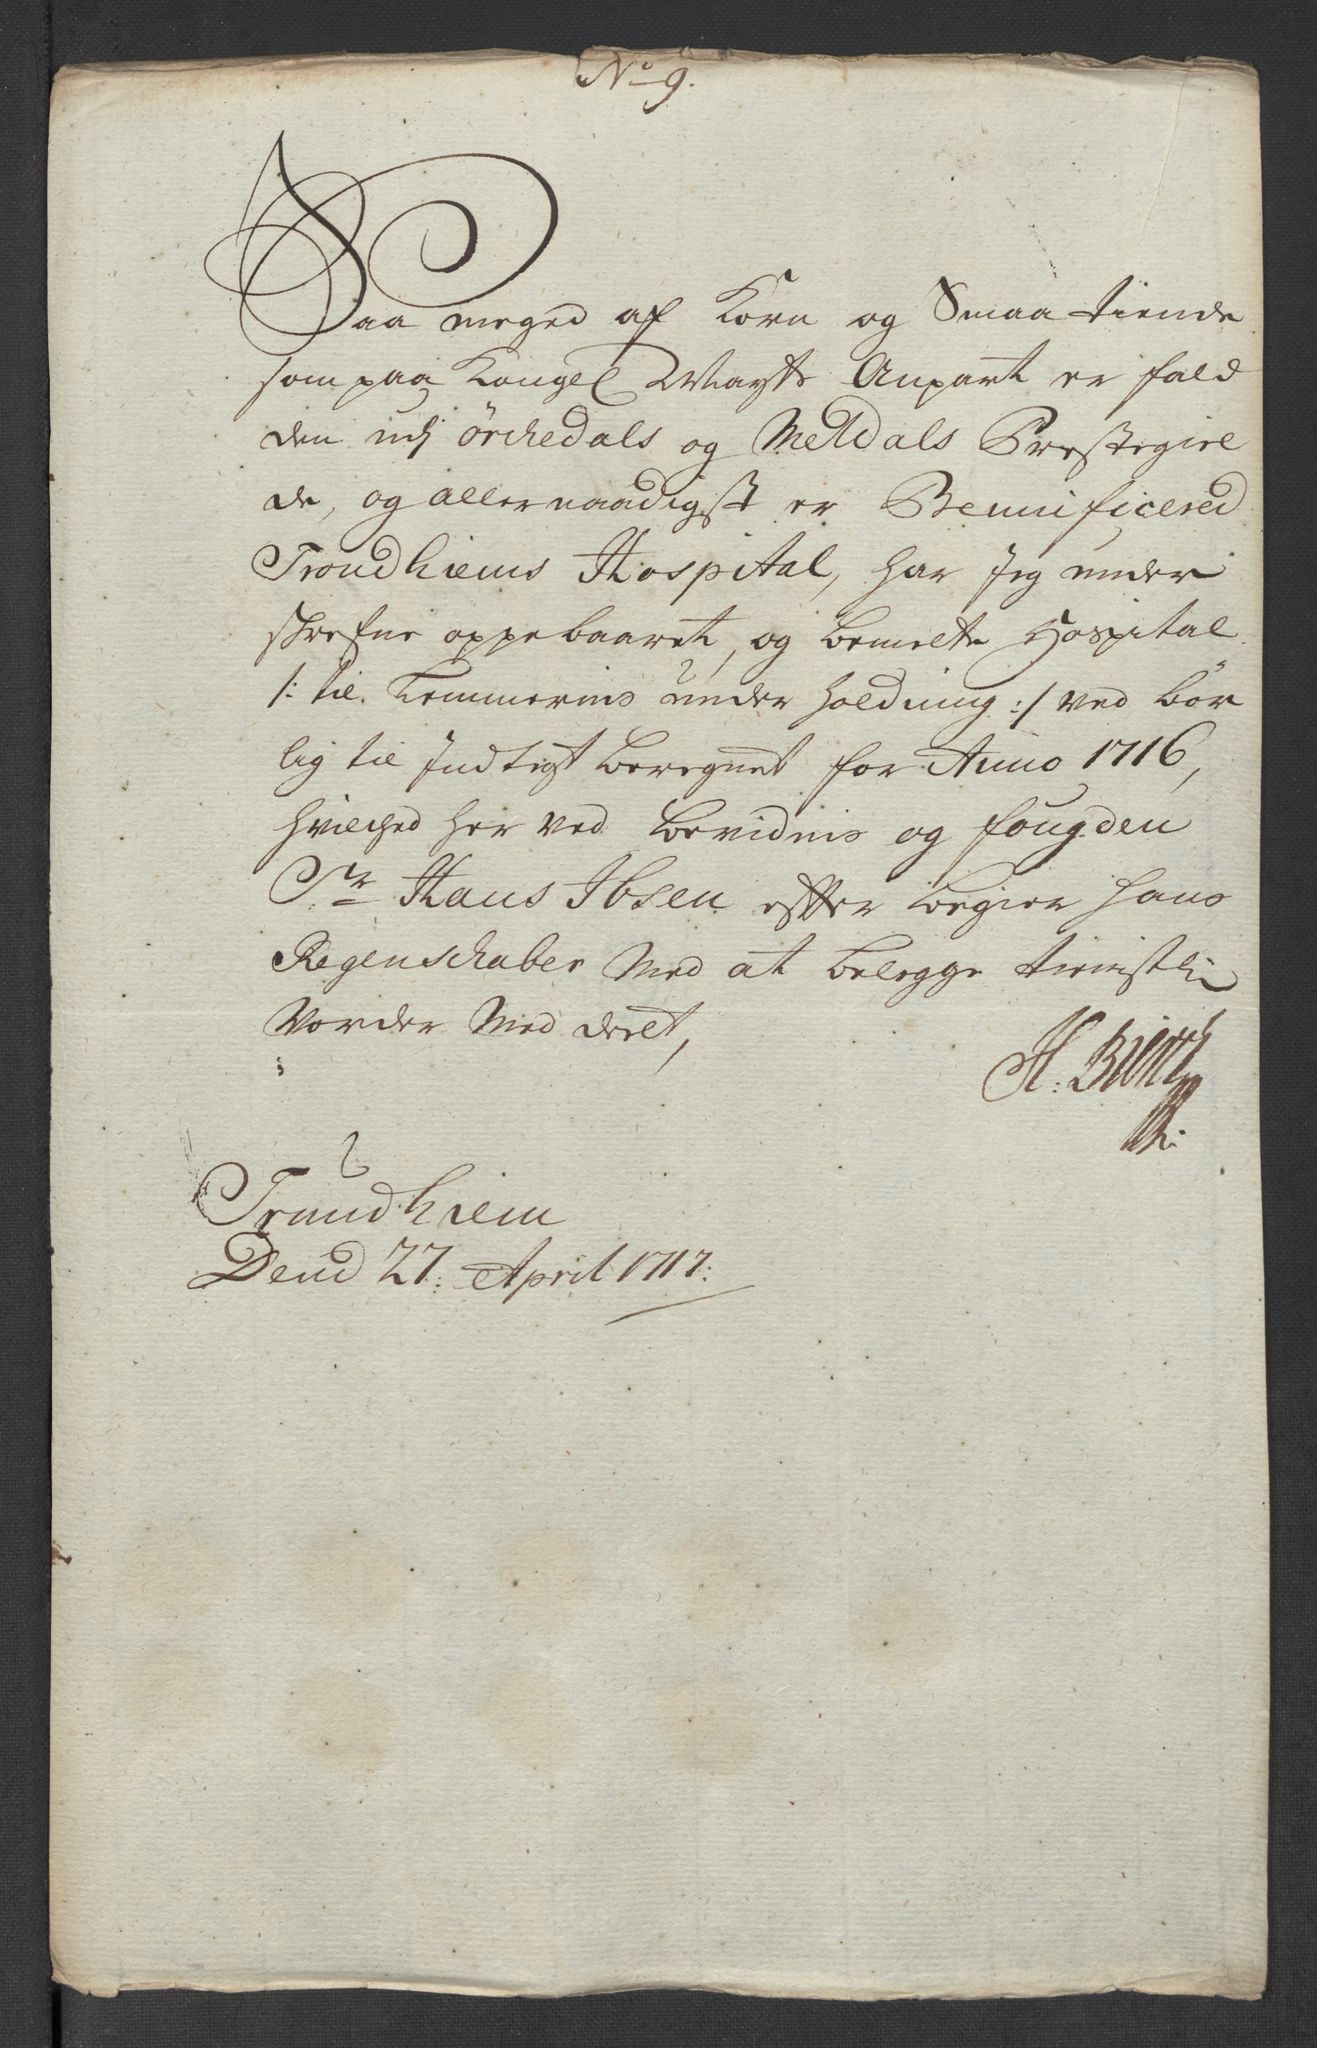 No 9.
Saa meged af Korn og Smaa tiende
som paa Kongel Mayts Anpart er fald
den udj Örchedals og Meldals Prestegiel
de, og allernaadigst er Bennificered
Trondhiems Hospital, har Jeg under
skrefne oppebaaret, og bemelte Hospital
/: til Lemmernis under holdning :/ ved bör
lig til Indtegt beregnet for Anno 1716,
hvilched her ved bevidnis og fougden
Sr Hans Ibsen efter begier hans
Regenschaber Med at belegge tienistli
Vorder Med deelt,
H.
Trundhiem
Dend 27. April 1717.